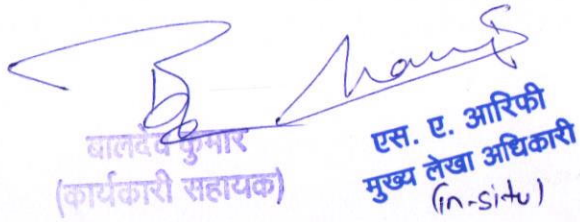 बालदेव कुमार
(कार्यकारी सहायक)
एस. ए. आरिफी
मुख्य लेखा अधिकारी
(in-situ)